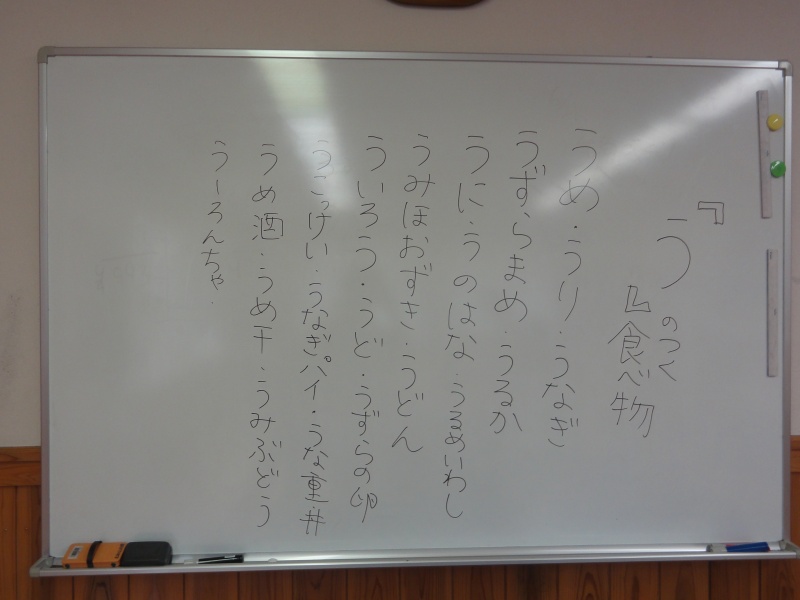 『うのつく
』食べ物
うめ・うり・うなぎ
うずらまめ・うるか
うに・うのはな・うるめいわし
うみほおずき・うどん
ういろう・うど・うずらの卵
うこっけい・うなぎパイ・うな重・丼
うめ酒・うめ干・うみぶどう
うーろんちゃ・